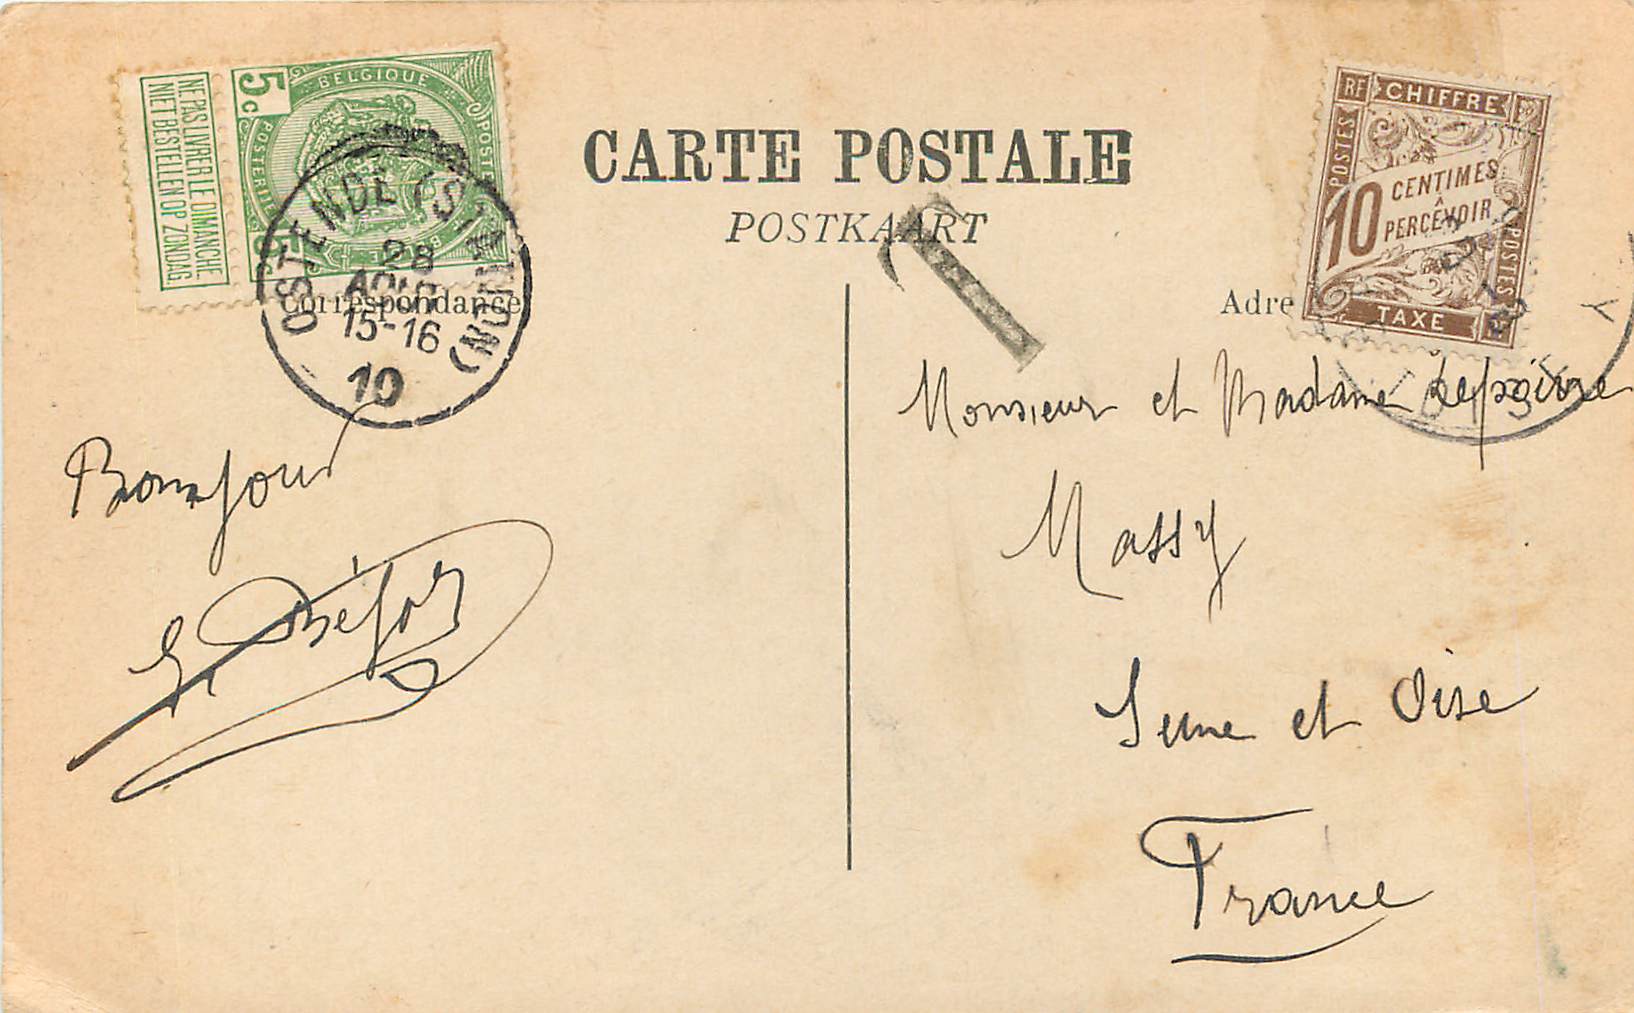 CARTE POSTALE
POSTKAART
Correspondance
BELGIQUE
5c
POSTERIJEN
NE PAS LIVRER LE DIMANCHE
NIET BESTELLEN OP ZONDAG
OSTENDE (STATION)
28
AOUT
15-16
10
T
RF
CHIFFRE
POSTES
10 CENTIMES
À
PERCEVOIR
POSTES
TAXE
Adre
Bonjour
Monsieur et Madame
Massy
Seine et Oise
France